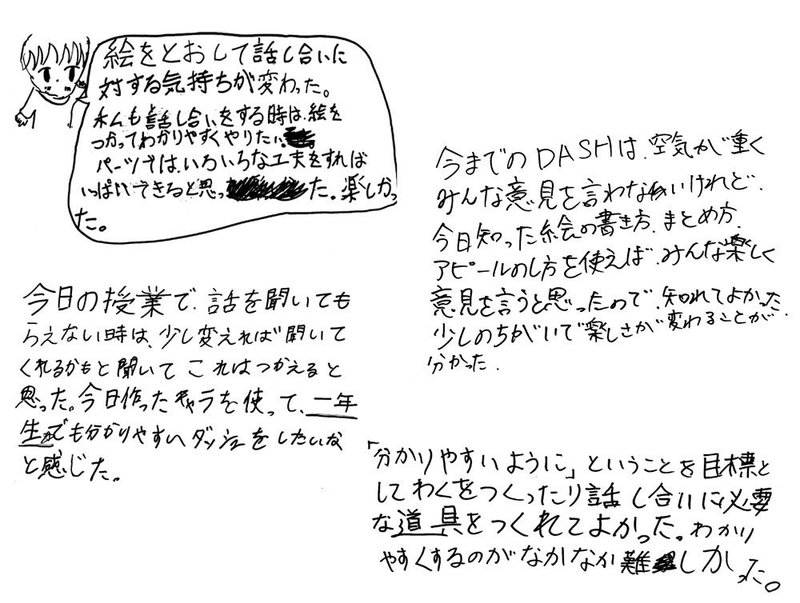 絵をとおして話し合いに
対する気持ちが変わった。
私も話し合いをする時は、絵を
つかってわかりやすくやりたい。
パーツでは、いろいろな工夫をすれば
いっぱいできると思った。楽しかっ
た。
今日の授業で、話を聞いても
らえない時は、少し変えれば聞いて
くれるかもと聞いて これはつかえると
思った。今日作ったキャラを使って、一年
生でも分かりやすいダッシュをしたいな
と感じた。
今までのDASHは、空気が重く
みんな意見を言わないけれど、
今日知った絵の書き方、まとめ方、
アピールのし方を使えば、みんな楽しく
意見を言うと思ったので、知れてよかった
少しのちがいで楽しさが変わることが、
分かった.
「分かりやすいように」ということを目標と
してわくをつくったり話し合いに必要
な道具をつくれてよかった。わかり
やすくするのがなかなか難しかった。